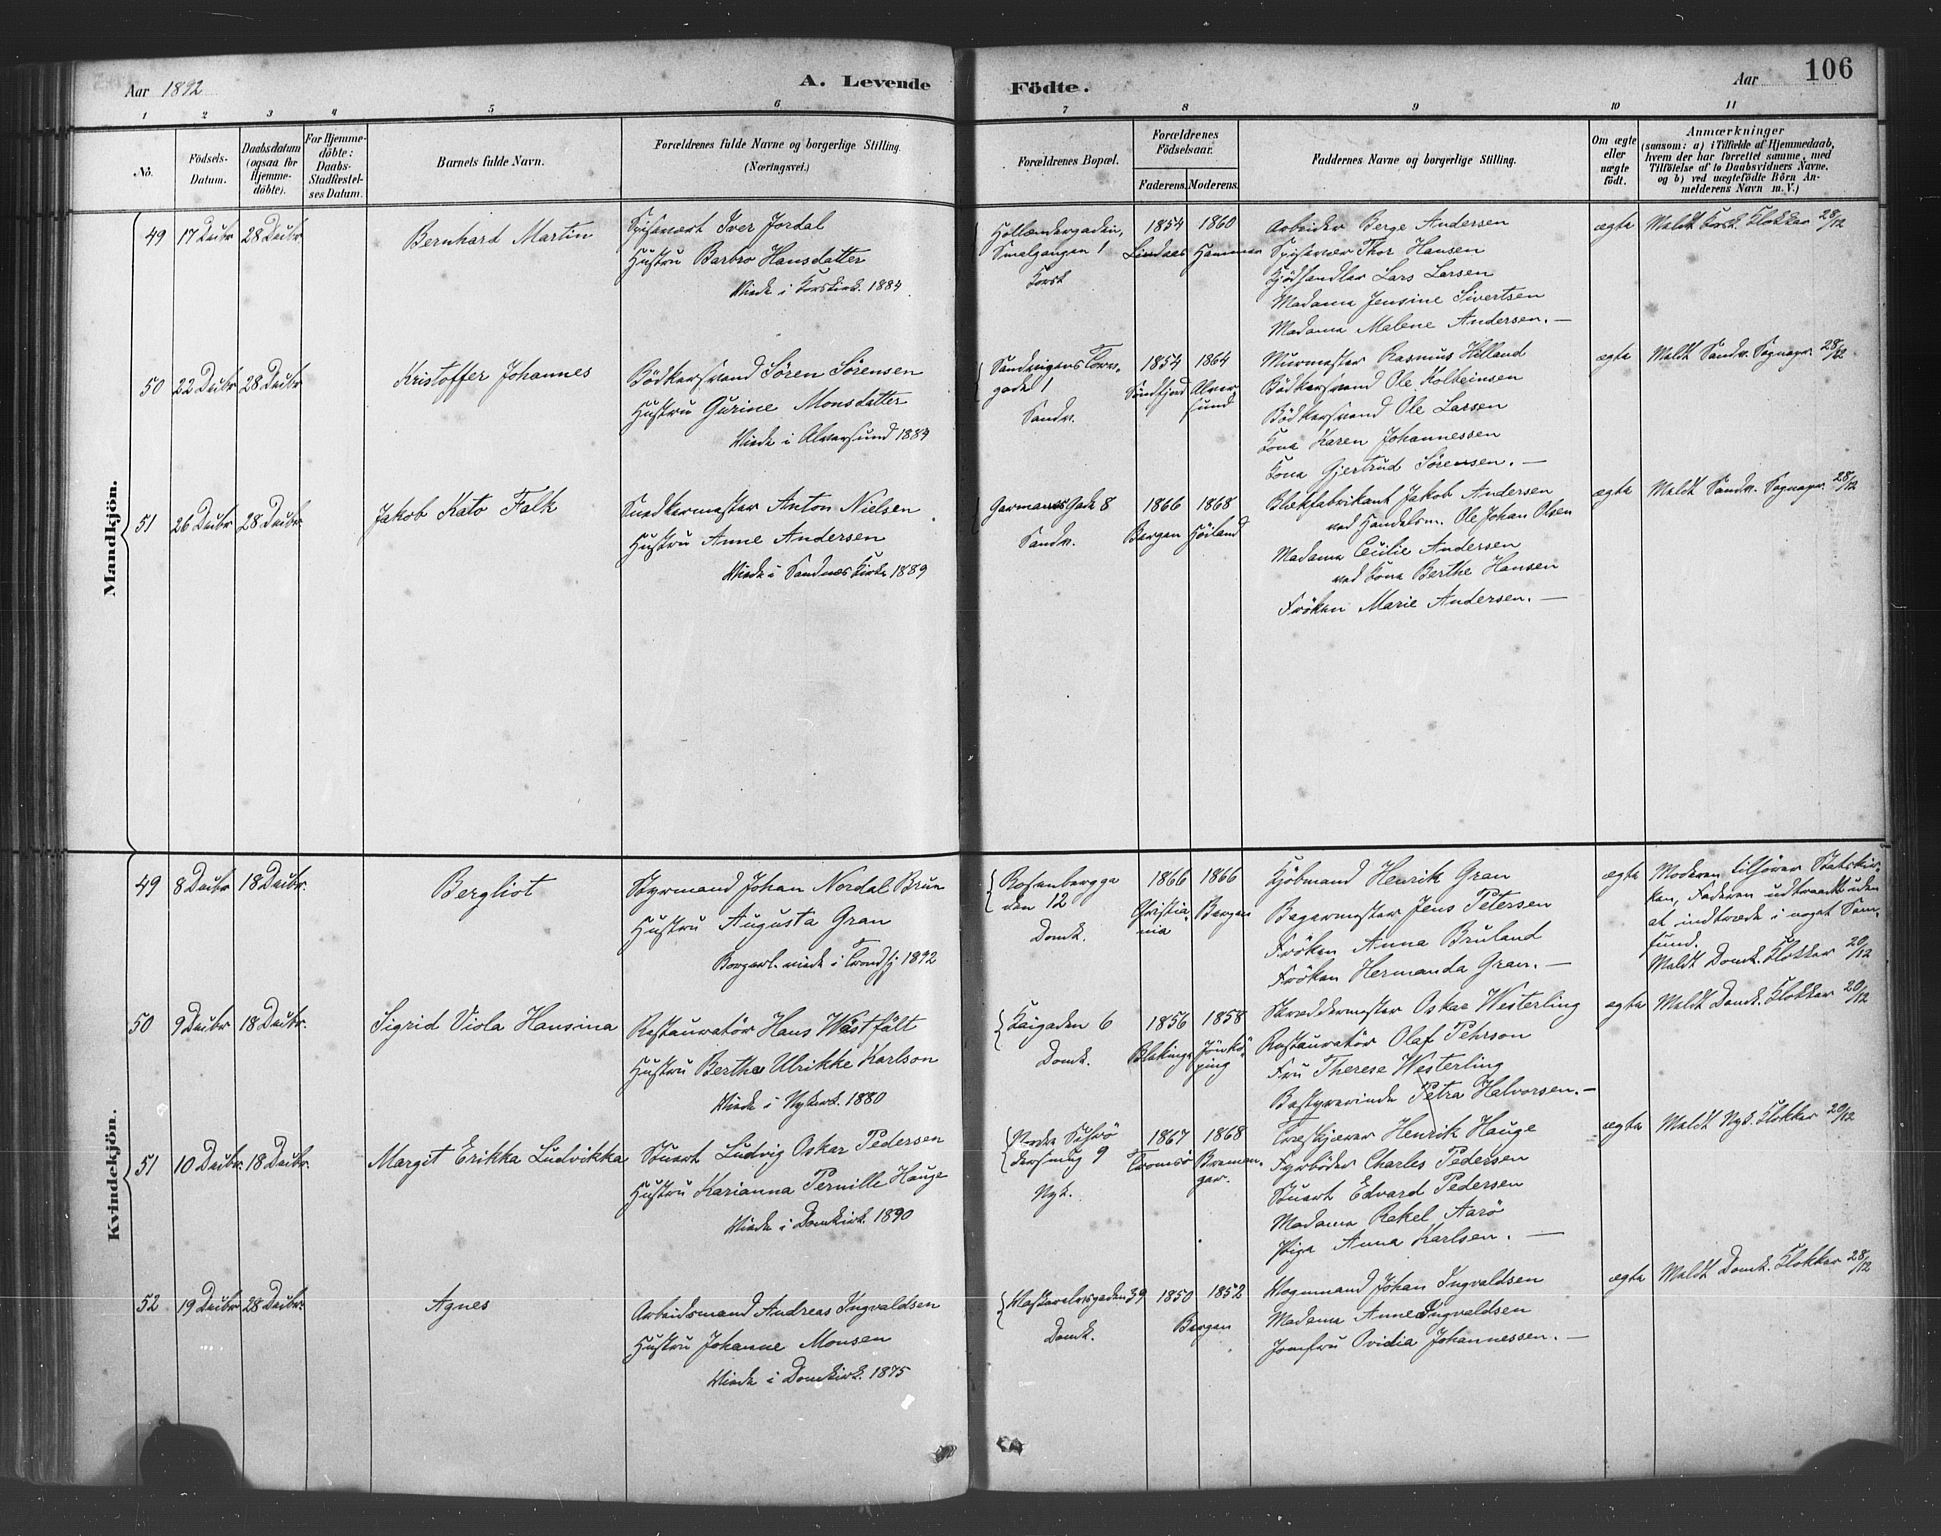 Aar 1892
A. Levende
Födte.
Aar
106
1 2 3 4 5 6 7 8 9 10 11
No.
Födsels-
Datum.
Daabsdatum
(ogsaa for
Hjemme-
döbte).
For Hjemme-
döbte:
Daabs-
Stadfæstel-
ses Datum.
Barnets fulde Navn.
Forældrenes fulde Navne og borgerlige Stilling.
(Næringsvei.)
Forældrenes Bopæl.
Forældrenes
Födselsaar.
Faderens. Moderens.
Faddernes Navne og borgerlige Stilling.
Om ægte
eller
uægte
födt.
Anmærkninger
(saasom: a) i Tilfælde af Hjemmedaab,
hvem der har forrettet samme, med
Tilföielse af to Daabsvidners Navne.
og b) ved uægtefödte Börn An-
melderens Navn m. V.)
Mandkjön.
49 17 Decbr 28 Decbr
Bernhard Martin
Spisevært Iver Jordal
Hustru Barbro Hansdatter
Viede i Korskirk. 1884
Hollændergaden,
Smalgangen 1
Korsk
1854 1860
Lindaas Hammer
Arbeider Berge Andersen
Spisevær Thor Hansen
Kjödhandler Lars Larsen
Madame Jensine Sivertsen
Madame Malene Andersen. —
ægte
Meldt Korsk. Klokker 28/12
50 22 Decbr 28 Decbr
Kristoffer Johannes
Bödkersvend Sören Sörensen
Hustru Gurine Monsdatter
Viede i Alversund 1884
Sandvigens Torv-
gade 1
Sandv.
1854 1864
Söndfjord Alver-
sund
Murmester Rasmus Helland
Bödkersvend Ole Kolbeinsen
Bödkersvend Ole Larsen
Kone Karen Johannessen
Kone Gjertrud Sörensen. —
ægte
Meldt Sandv. Sognepr. 28/12
51 26 Decbr 28 Decbr
Jakob Kato Falk
Snedkermester Anton Nielsen
Hustru Anne Andersen
Viede i Sandnæs Kirke 1889
Garmanns Gade 8
Sandv.
1866 1868
Bergen Höiland
Blækfabrikant Jakob Andersen
ved Handelsm. Ole Johan Olsen
Madame Cecilie Andersen
ved Kone Berthe Hansen
Fröken Marie Andersen. —
ægte
Meldt Sandv. Sognepr. 28/12
Kvindekjön.
49 8 Decbr 18 Decbr.
Bergliot
Styrmand Johan Nordal Brun
Hustru Augusta Gran
Borgerl. viede i Trondhj 1892
Rosenbergga
den 12
Domk.
1866 1866
Christia- Bergen
nia
Kjöbmand Henrik Gran
Bagermester Jens Petersen
Fröken Anna Bruland
Fröken Hermanda Gran. —
ægte
Moderen tilhörer Statskir-
ken, Faderen udtraadt uden
at indtræde i noget Sam-
fund.
Meldt Domk. Klokker 20/12
50 9 Decbr 18 Decbr.
Sigrid Viola Hansina
Restauratör Hans Westfält
Hustru Berthe Ulrikke Karlson
Viede i Nykirk. 1880
Kaigaden 6
Domk.
1856 1858
Blekinge Jönkö-
ping
Skræddermester Oskar Westerling
Restauratör Olaf Pehrson
Fru Therese Westerling
Bestyrerinde Petra Halvorsen. —
ægte
Meldt Domk. Klokker 20/12
51 10 Decbr 18 Decbr.
Margit Erikka Ludvikka
Stuert Ludvig Oskar Pedersen
Hustru Karianna Pernille Hauge
Viede i Domkirk. 1890
dersmug 9
Nyk.
1867 1868
Tromsö Breman-
ger.
Træskjærer Henrik Hauge
Fyrböder Charles Pedersen
Stuert Edvard Pedersen
Madame Rakel Aarö
Pige Anna Karlsen. —
ægte
Meldt Nyk. Klokker 20/12
52 19 Decbr 28 Decbr.
Agnes
Arbeidsmand Andreas Ingvaldsen
Hustru Johanne Monsen
Viede i Domkirk. 1875
Vaskerelvsgaden 39
Domk.
1850 1852
Bergen
Vognmand Johan Ingvaldsen
Madame Anne Ingvaldsen
Jomfru Ovidia Johannessen. —
ægte
Meldt Domk. Klokker 28/12